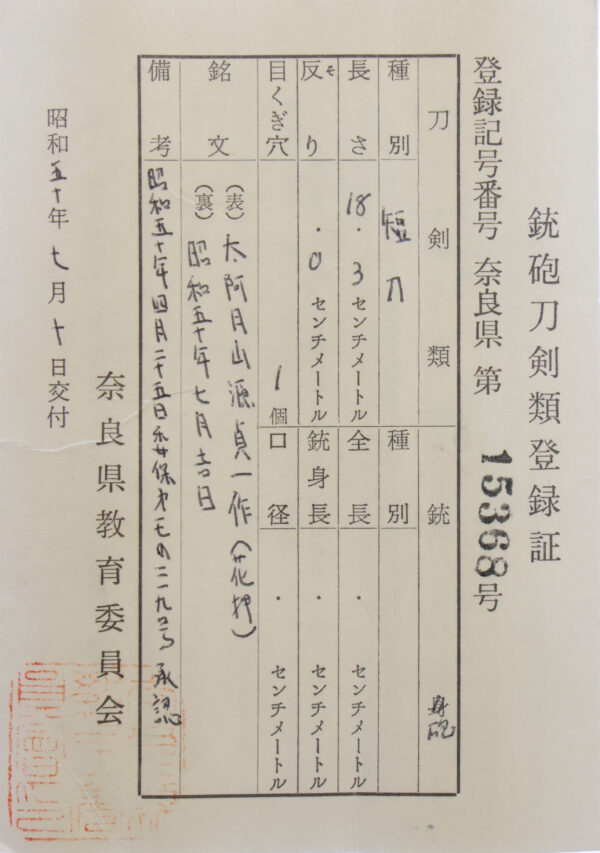 銃砲刀剣類登録証
登録記号番号 奈良県 第 15368 号
刀剣類 銃
種別 短刀 種別
長さ 18.3 センチメートル 全長 ・ センチメートル
反り .0 センチメートル 銃身長 ・ センチメートル
目くぎ穴 1個 口径 ・ センチメートル
銘文 (表) 太阿月山源貞一作(花押)
(裏) 昭和五十年七月吉日
備考 昭和五十年四月二十五日 承認
昭和五十年七月十日交付
奈良県教育委員会